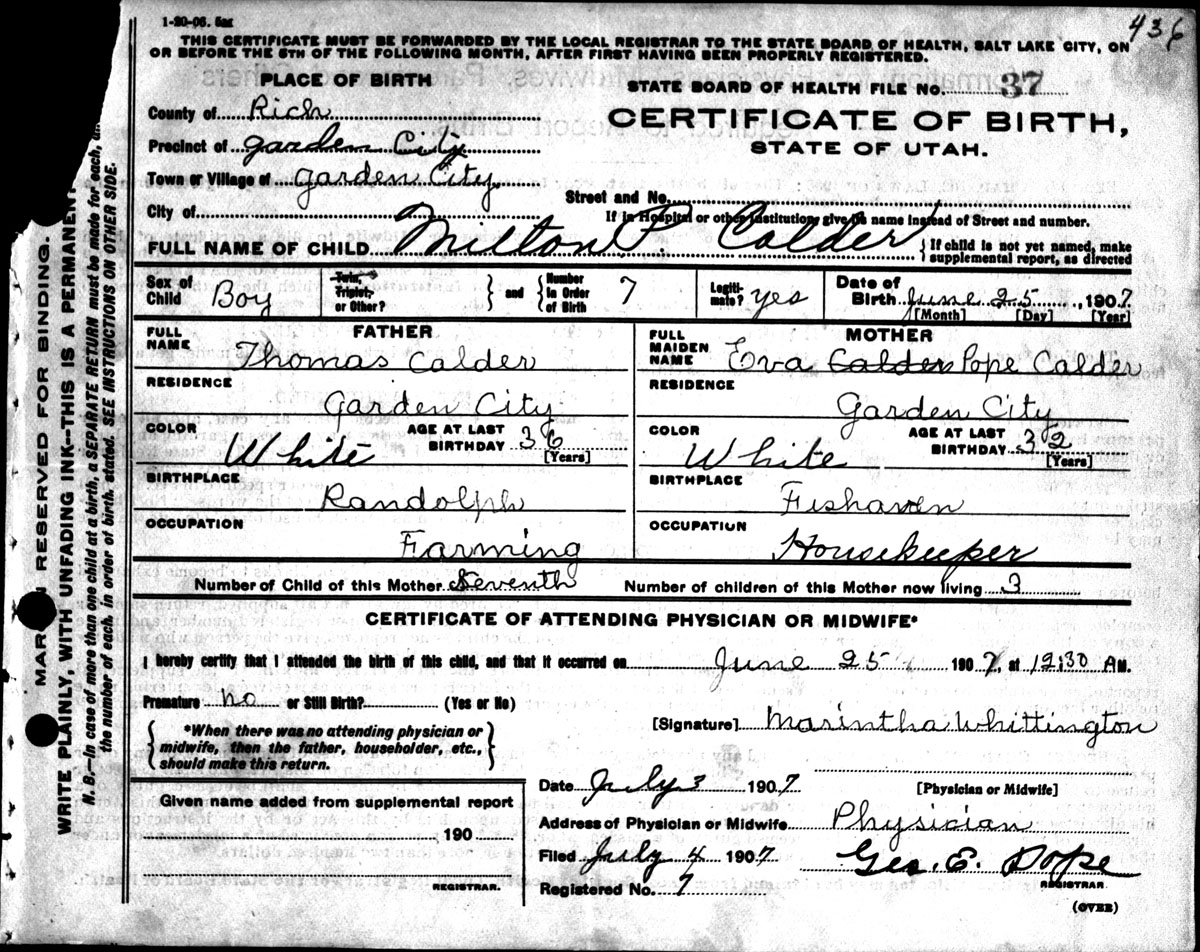 1-20-06. 5m
436
THIS CERTIFICATE MUST BE FORWARDED BY THE LOCAL REGISTRAR TO THE STATE BOARD OF HEALTH, SALT LAKE CITY, ON
OR BEFORE THE 5TH OF THE FOLLOWING MONTH, AFTER FIRST HAVING BEEN PROPERLY REGISTERED.
PLACE OF BIRTH
STATE BOARD OF HEALTH FILE NO. 37
County of Rich
CERTIFICATE OF BIRTH,
Precinct of Garden City
STATE OF UTAH.
Town or Village of Garden City
Street and No.
City of
If in Hospital or other institution, give its name instead of Street and number.
FULL NAME OF CHILD Milton P. Calder
If child is not yet named, make
supplemental report, as directed
Sex of Child Boy
Twin, Triplet, or Other?
and Number in Order of Birth 7
Legitimate? yes
Date of Birth June 25, 1907
[Month] [Day] [Year]
FATHER
FULL NAME Thomas Calder
MOTHER
FULL MAIDEN NAME Eva Calder Pope Calder
RESIDENCE Garden City
RESIDENCE Garden City
COLOR White AGE AT LAST BIRTHDAY 36 [Years]
COLOR White AGE AT LAST BIRTHDAY 32 [Years]
BIRTHPLACE Randolph
BIRTHPLACE Fishaven
OCCUPATION Farming
OCCUPATION Housekeeper
Number of Child of this Mother Seventh Number of children of this Mother now living 3
CERTIFICATE OF ATTENDING PHYSICIAN OR MIDWIFE*
I hereby certify that I attended the birth of this child, and that it occurred on June 25, 1907, at 12:30 AM.
Premature no or Still Birth? (Yes or No)
*When there was no attending physician or
midwife, then the father, householder, etc.,
should make this return.
[Signature] Marintha Whittington
[Physician or Midwife]
Date July 3 1907
Given name added from supplemental report
190
REGISTRAR.
Address of Physician or Midwife Physician
Filed July 4 1907 Geo. E. Pope
REGISTRAR.
Registered No. 7
(OVER)
RESERVED FOR BINDING.
WRITE PLAINLY, WITH UNFADING INK--THIS IS A PERMANENT
N. B.--In case of more than one child at a birth, a SEPARATE RETURN must be made for each, an
the number of each, in order of birth, stated. SEE INSTRUCTIONS ON OTHER SIDE.